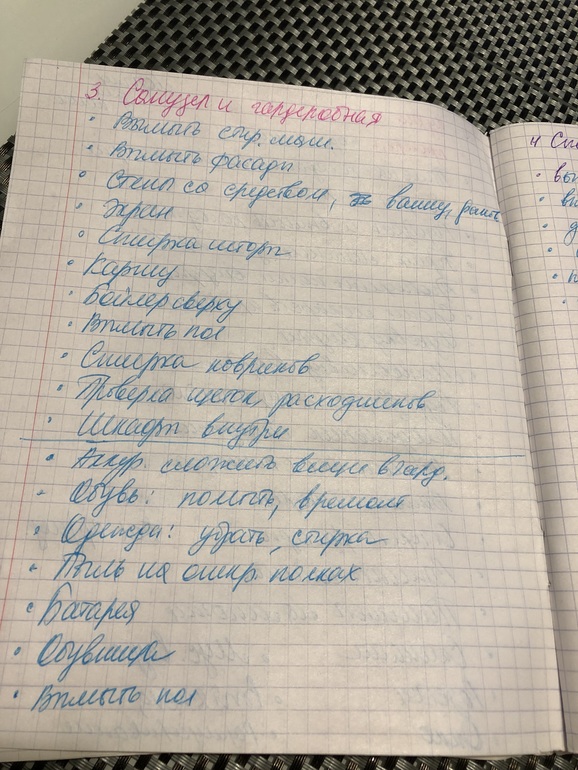 3. Санузел и гардеробная
• Вымыть стир. маш.
• Вымыть фасады
• Стены со средством, ванну,
• Экран
• Стирка шторы
• Карниз
• Бойлер сверху
• Вымыть пол
• Стирка ковриков
• Проверка щеток, расходников
• Шкафы внутри
• Аккур. сложить вещи в гард.
• Обувь: помыть, в ремонт
• Одежда: убрать, стирка
• Пыль на откр. полках
• Батарея
• Обувница
• Вымыть пол
4